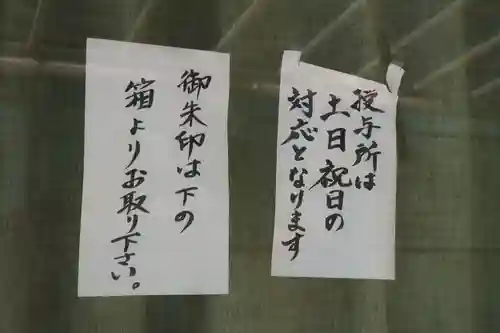 授与所は
土日祝日の
対応となります
御朱印は下の
箱よりお取り下さい。